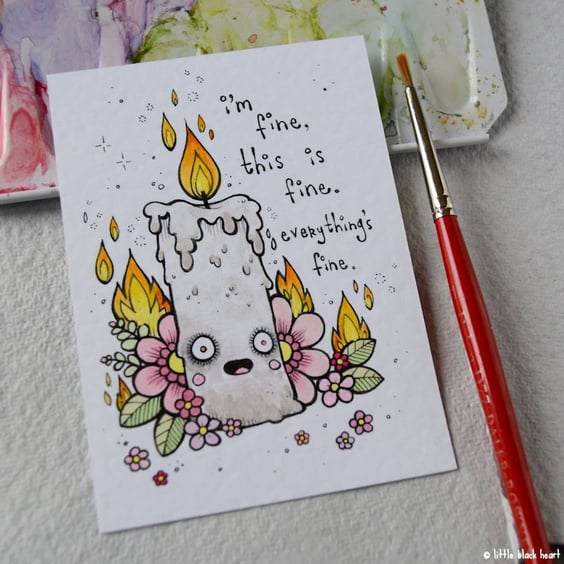 i'm
fine,
this is
fine.
everything's
fine.
© little black heart